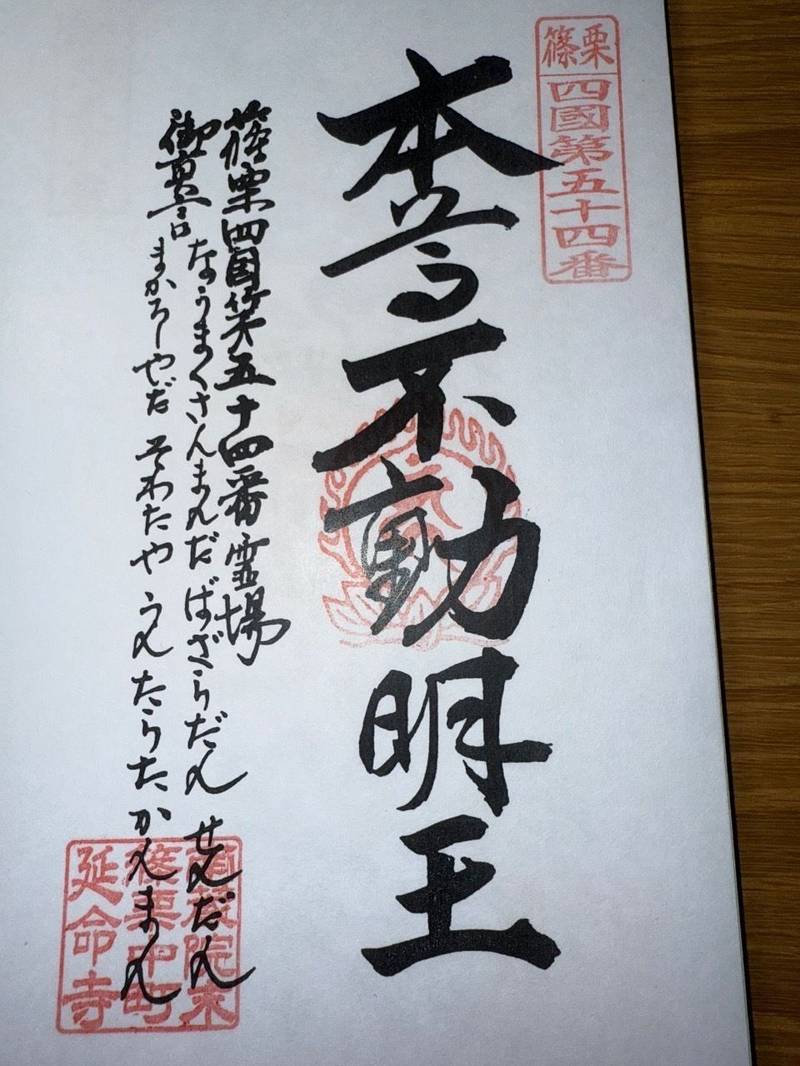 篠栗
四國第五十四番
本尊不動明王
篠栗四国第五十四番霊場
なうまくさんまんだばざらだん せんだん
御真言 まかろしやだ そわたや うんたらたかんまん
南蔵院末
篠栗中町
延命寺